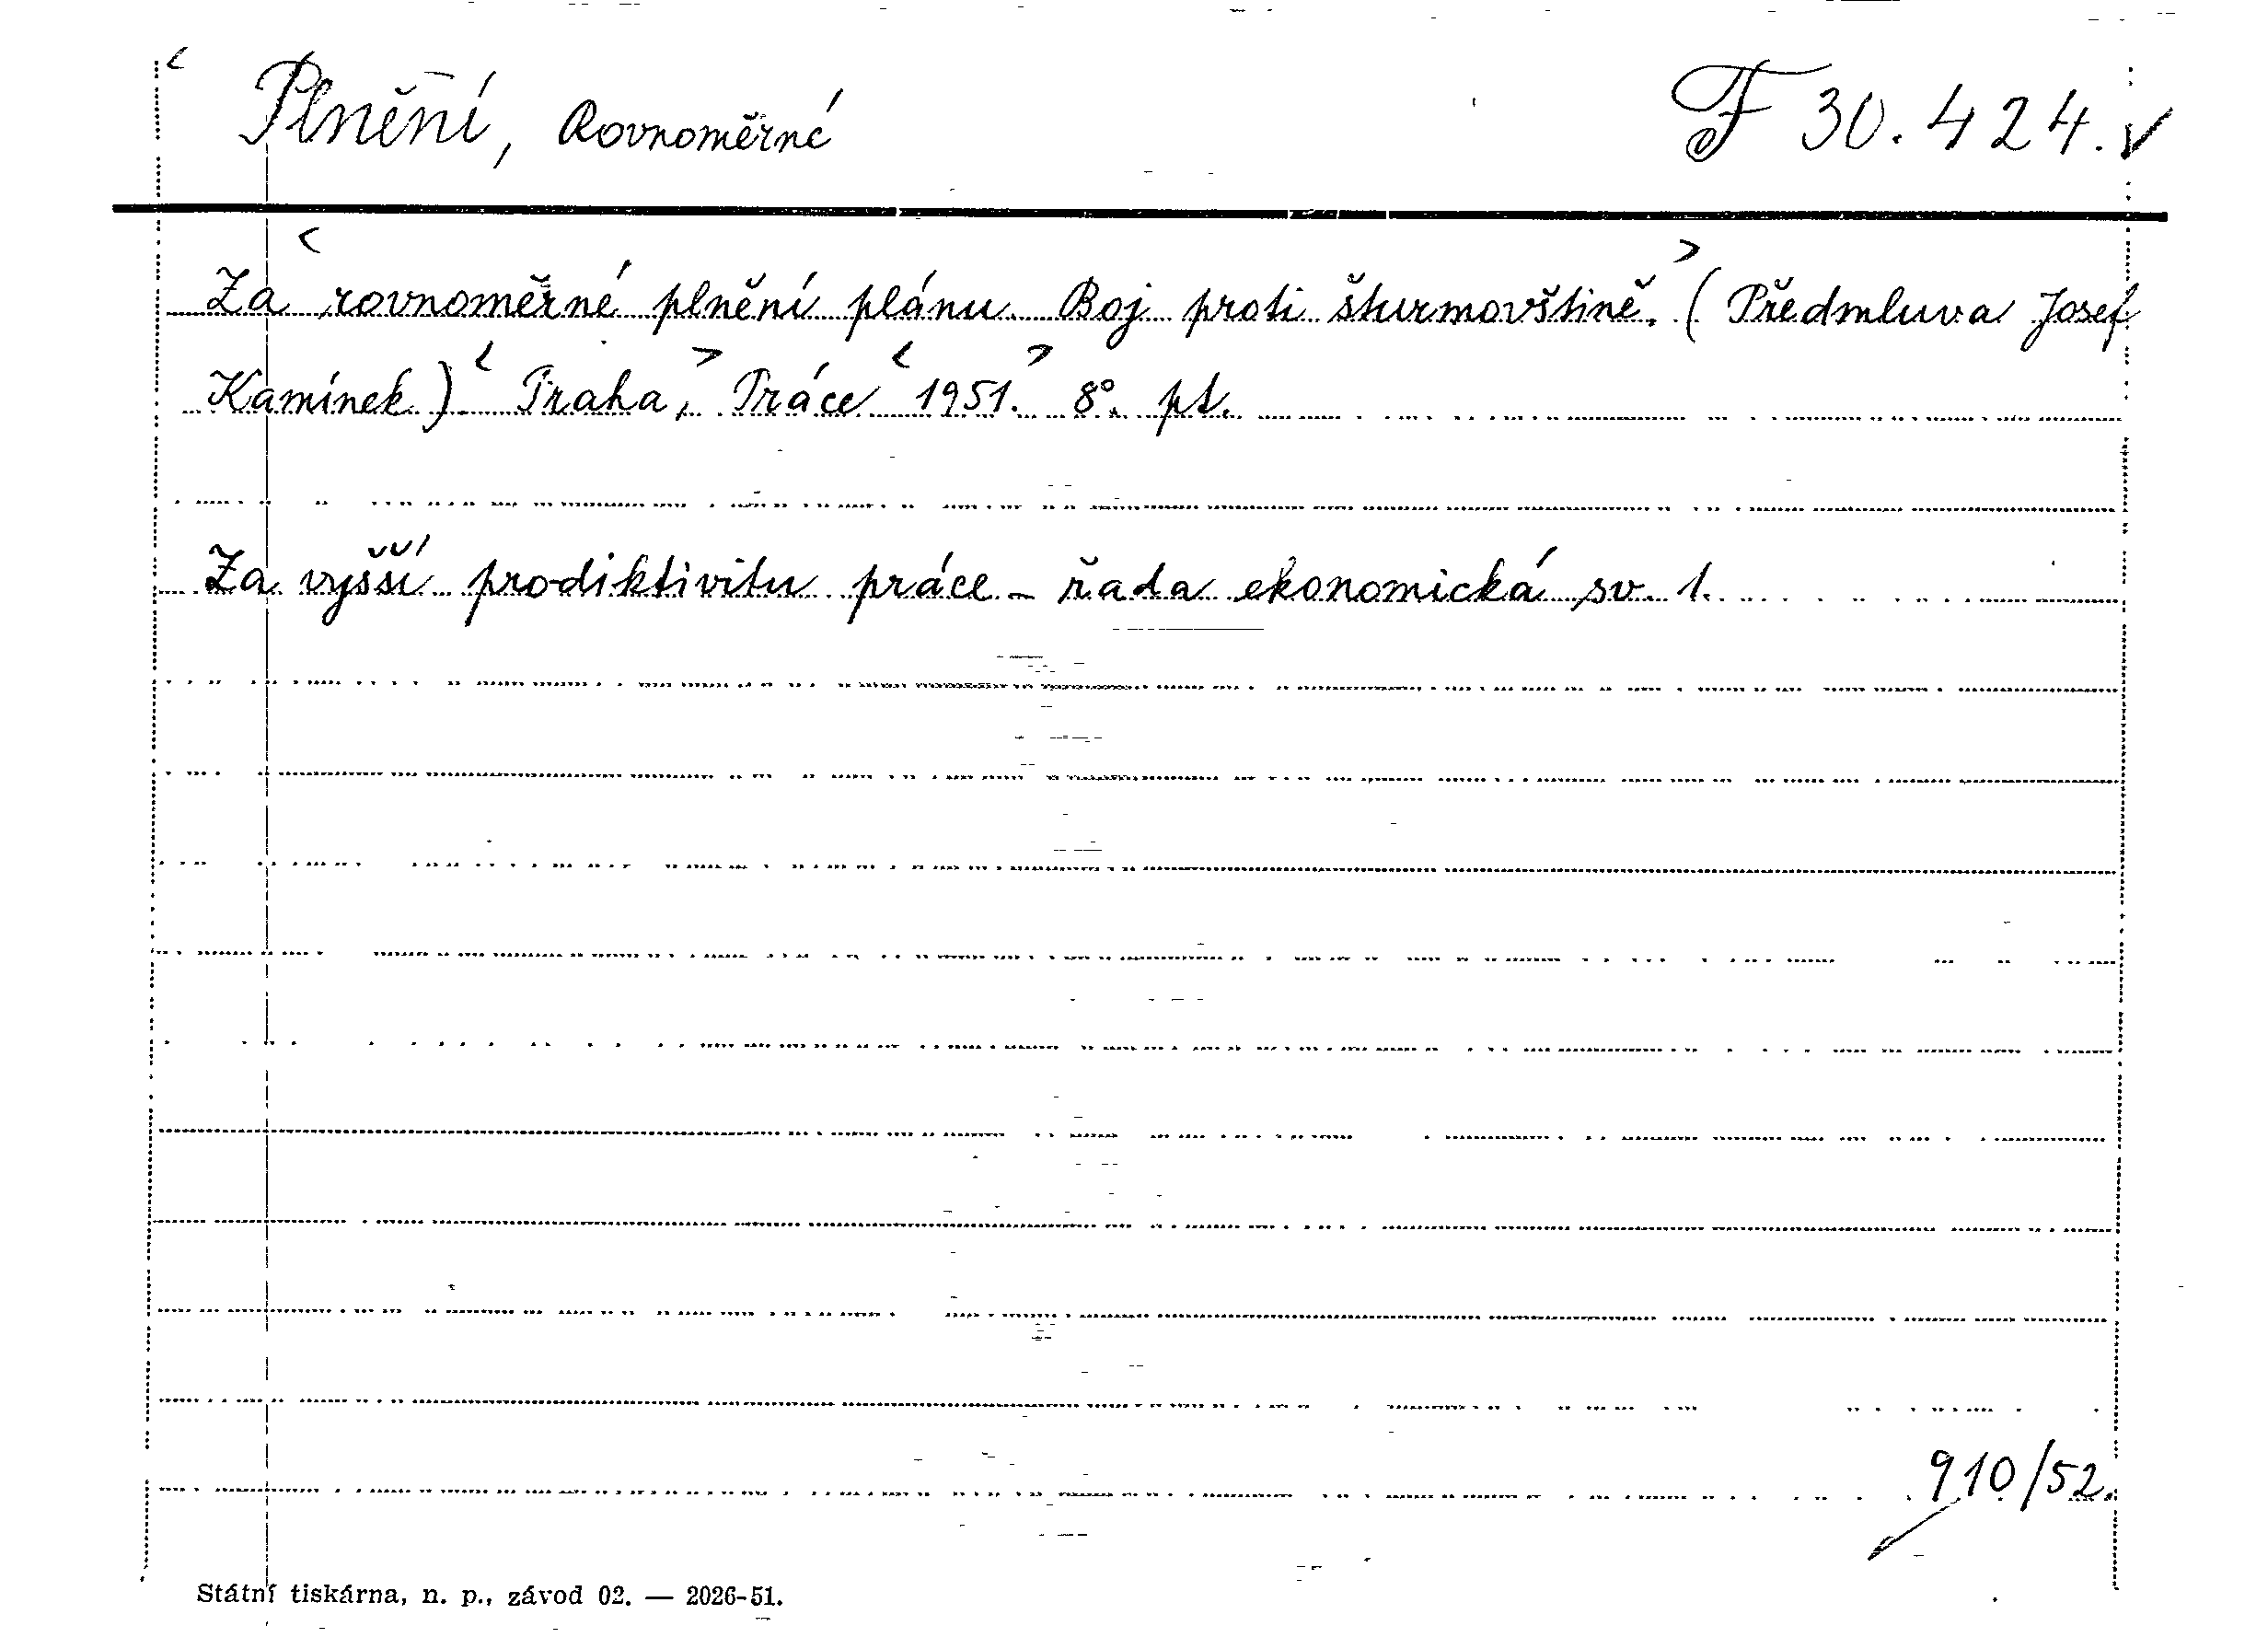 Plnění, Rovnoměrné F 30.424.
Za rovnoměrné plnění plánu. Boj proti šturmovštině. (Předmluva Josef
Kamínek). Praha, Práce 1951. 8°. pt.
Za vyšší prodiktivitu práce - řada ekonomická sv. 1.
910/52.
Státní tiskárna, n. p., závod 02. — 2026-51.